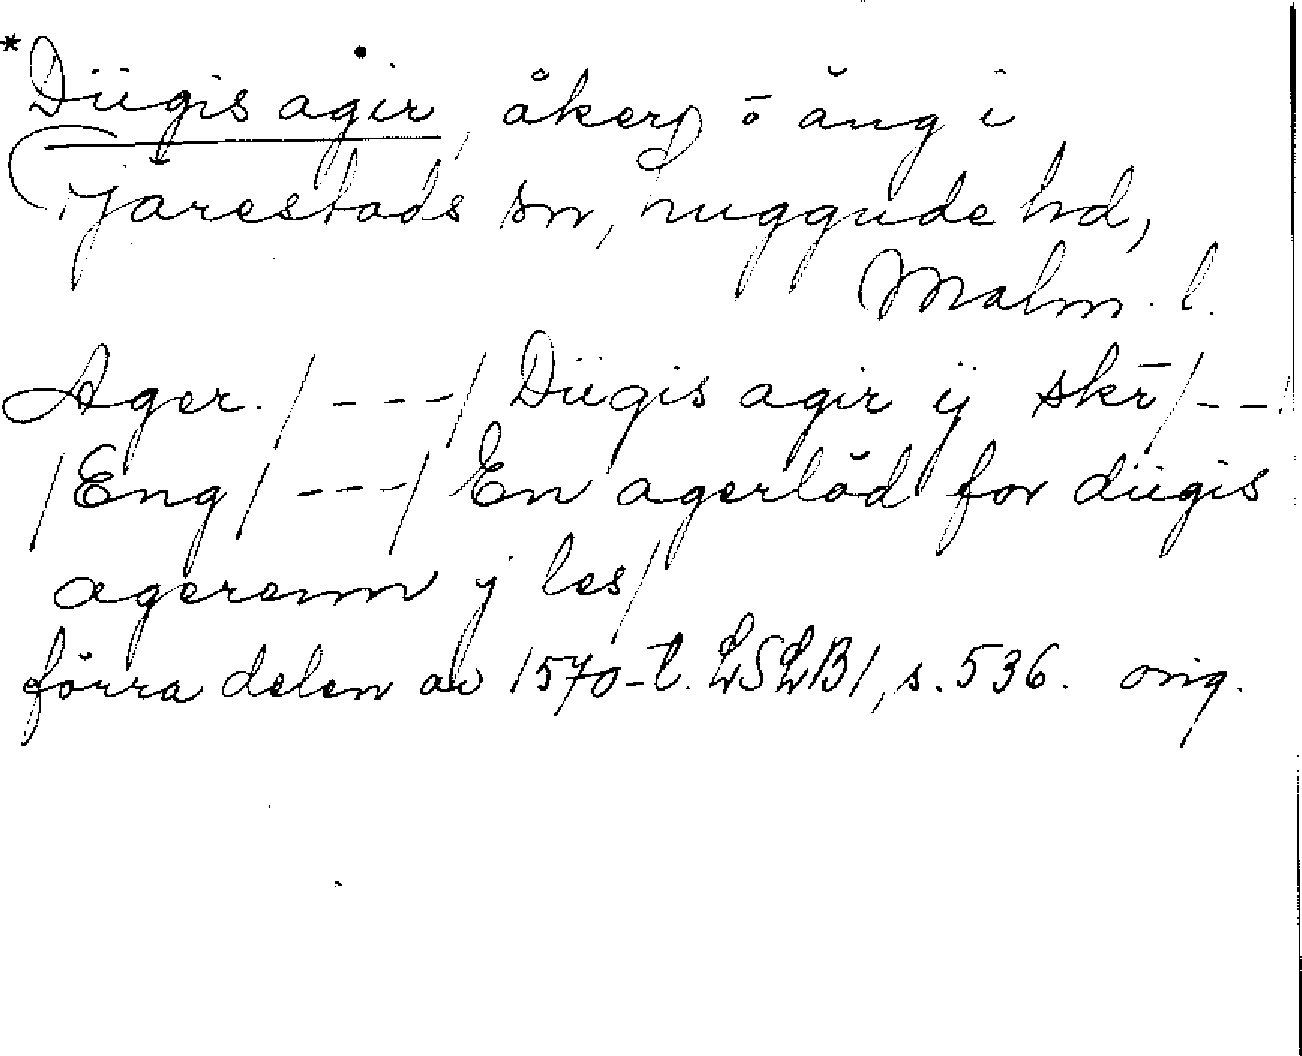 *Diigis agir, åkerj o äng i
Järestads sn, ruggude hd,
Malm. l.
Ager. /---/ Diigis agir ij skr̄ /---
/Eng/ ---/ En agerlăd for diigis
agerenn j les/
förra delen av 1570-t. LSLB1, s. 536. orig.